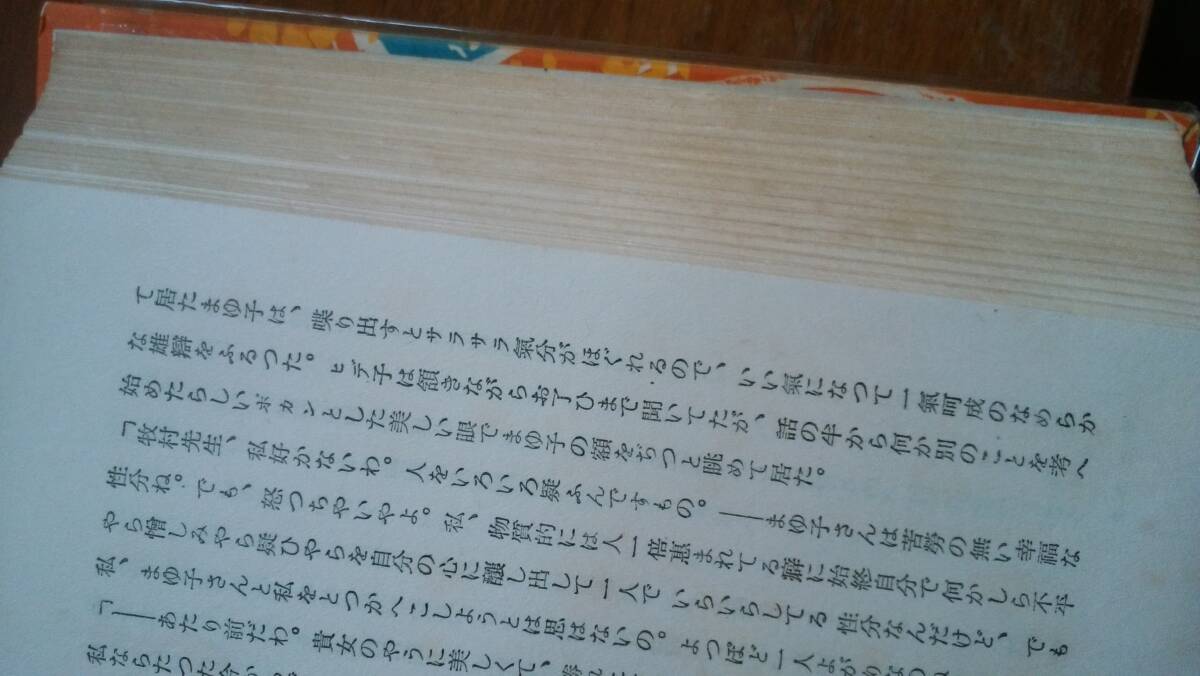 て居たまゆ子は、喋り出すとサラサラ氣分がほぐれるので、いい氣になつて一氣呵成のなめらか
な雄辯をふるつた。ヒデ子は頷きながらお了ひまで聞いてたが、話の半から何か別のことを考へ
始めたらしいポカンとした美しい眼でまゆ子の額をぢつと眺めて居た。
「牧村先生、私好かないわ。人をいろいろ疑ふんですもの。――まゆ子さんは苦勞の無い幸福な
性分ね。でも、怒つちやいやよ。私、物質的には人一倍惠まれてる癖に始終自分で何かしら不平
やら憎しみやら疑ひやらを自分の心に釀し出して一人でいらいらしてる性分なんだけど、でも
私、まゆ子さんと私をとつかへこしようとは思はないの。よつぽど一人よがめな
「――あたり前だわ。貴女のやうに美しくて、
私ならたつた今